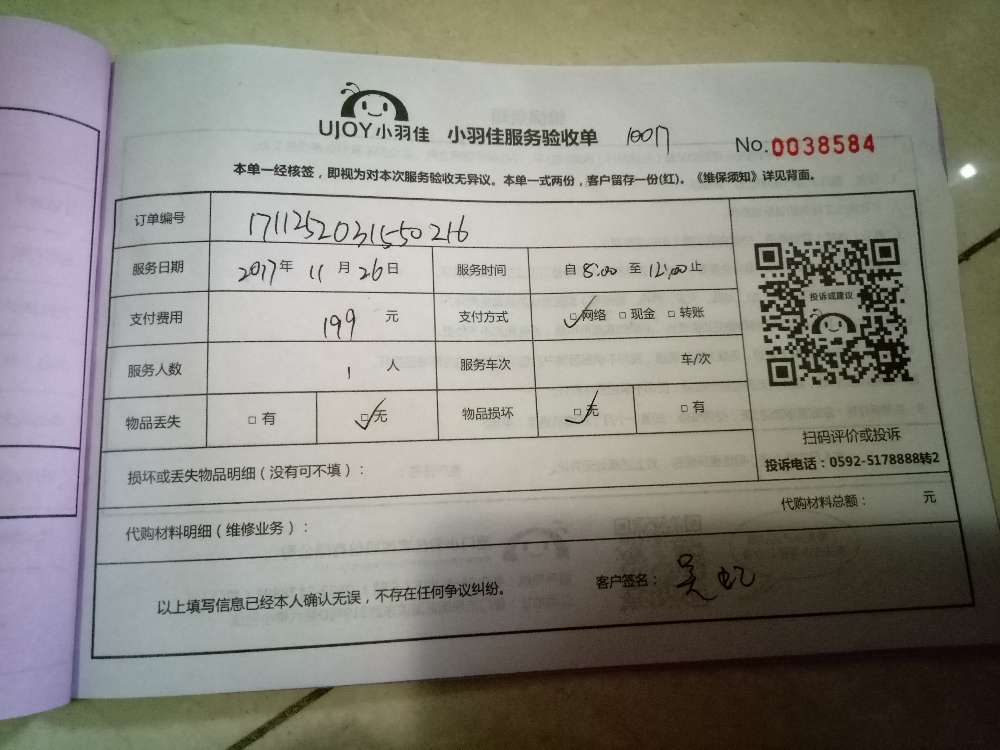 UJOY小羽佳 小羽佳服务验收单 10017 No.0038584
本单一经核签，即视为对本次服务验收无异议。本单一式两份，客户留存一份(红)。《维保须知》详见背面。
订单编号 1711252031550216
服务日期 2017年 11月 26日 服务时间 自 8:00 至 12:00 止
支付费用 199 元 支付方式 ☑网络 □现金 □转账
服务人数 1 人 服务车次 车/次
物品丢失 □有 ☑无 物品损坏 ☑无 □有
投诉或建议
扫码评价或投诉
投诉电话：0592-5178888转2
损坏或丢失物品明细（没有可不填）：
代购材料明细（维修业务）： 代购材料总额： 元
以上填写信息已经本人确认无误，不存在任何争议纠纷。 客户签名：吴虹